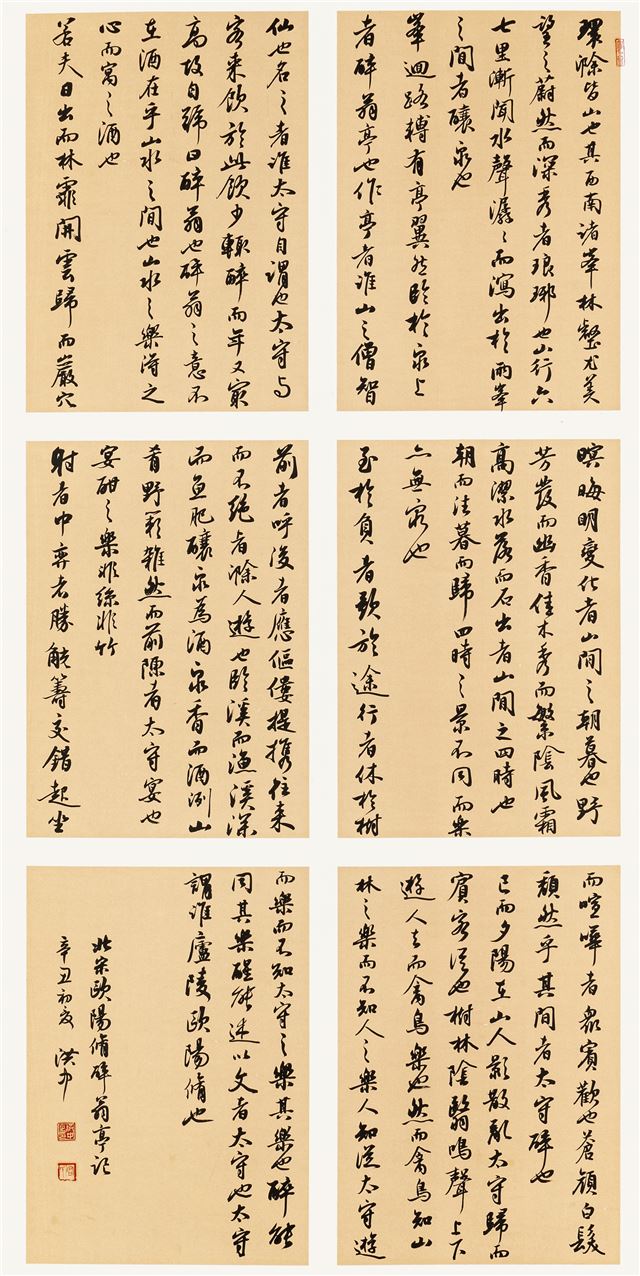 環滁皆山也其西南諸峯林壑尤美
望之蔚然而深秀者琅琊也山行六
七里漸聞水聲潺〻而瀉出於兩峯
之間者釀泉也
峯迴路轉有亭翼然臨於泉上
者醉翁亭也作亭者誰山之僧智
仙也名之者誰太守自謂也太守與
客来飲於此飲少輒醉而年又最
高故自號曰醉翁也醉翁之意不
在酒在乎山水之間也山水之樂得之
心而寓之酒也
若夫日出而林霏開雲歸而巖穴
暝晦明變化者山間之朝暮也野
芳發而幽香佳木秀而繁陰風霜
高潔水落而石出者山間之四時也
朝而往暮而歸四時之景不同而樂
亦無窮也
至於負者歌於途行者休於樹
前者呼後者應傴僂提攜往来
而不絶者滁人遊也臨溪而漁溪深
而魚肥釀泉為酒泉香而酒洌山
肴野蔌雜然而前陳者太守宴也
宴酣之樂非絲非竹
射者中弈者勝觥籌交錯起坐
而喧嘩者衆賓歡也蒼顔白髮
頹然乎其間者太守醉也
已而夕陽在山人影散亂太守歸而
賓客從也樹林陰翳鳴聲上下
遊人去而禽鳥樂也然而禽鳥知山
林之樂而不知人之樂人知從太守遊
而樂而不知太守之樂其樂也醉能
同其樂醒能述以文者太守也太守
謂誰廬陵歐陽脩也
北宋歐陽脩醉翁亭記
辛丑初夏